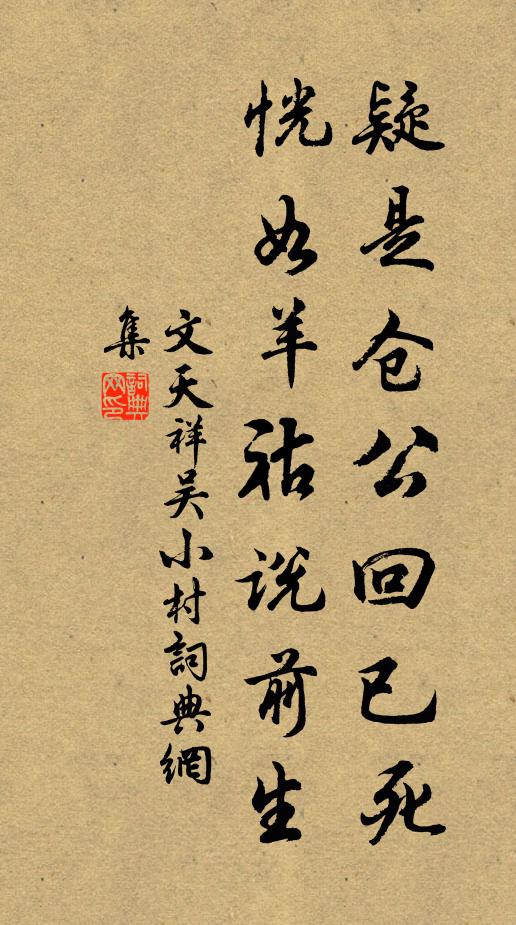 疑是仓公回已死
恍如羊祜说前生
文天祥吴小村詞典網
集
詞典網印